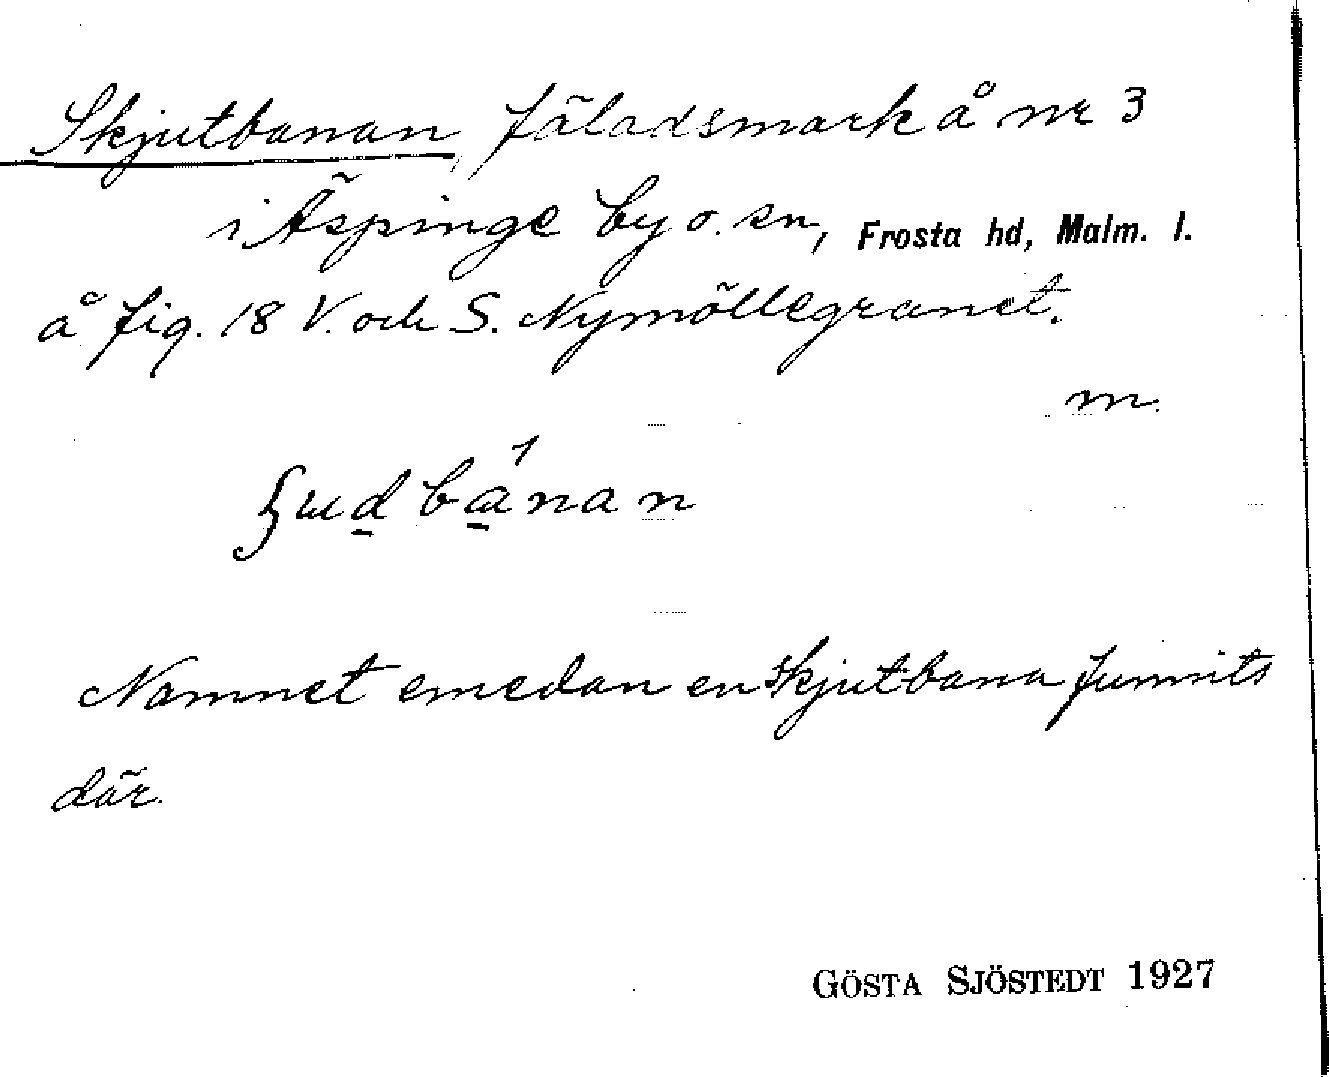 Skjutbanan, fäladsmark å nr 3
i Äspinge by o. sn, Frosta hd, Malm. l.
å fig. 18 V. och S. Nymöllegranet.
m.
Namnet emedan en skjutbana funnits
där.
GÖSTA SJÖSTEDT 1927